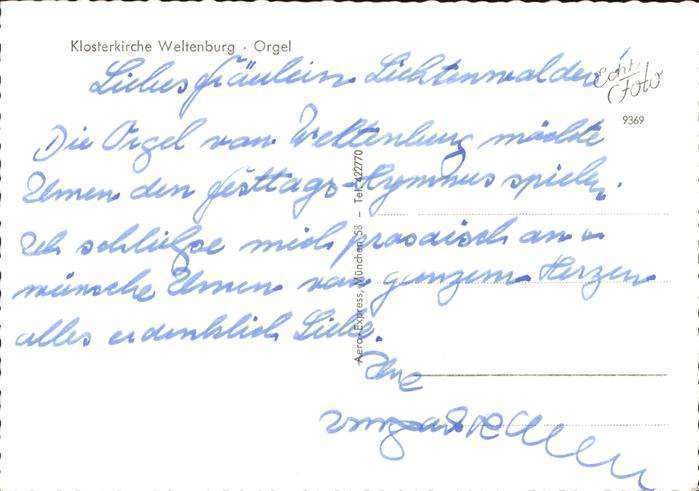 Klosterkirche Weltenburg · Orgel
Liebes Fräulein Lichtenwalder!
echt Foto
9369
Die Orgel von Weltenburg möchte
Ihnen den Festtags-Hymnus spielen.
Ich schließe mich prosaisch an u
wünsche Ihnen von ganzem Herzen
alles erdenklich Liebe.
Ihre
Aero-Express, München 58 - Tel. 422770